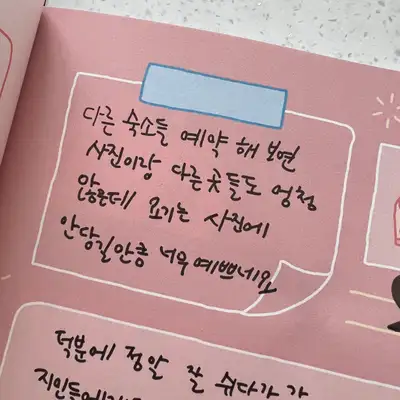 다른 숙소들 예약 해 보면
사진이랑 다른곳들도 엄청
많은데 요기는 사진에
안담길만큼 너무 예쁘네요
덕분에 정말 잘 쉬다가 가
지인들에게